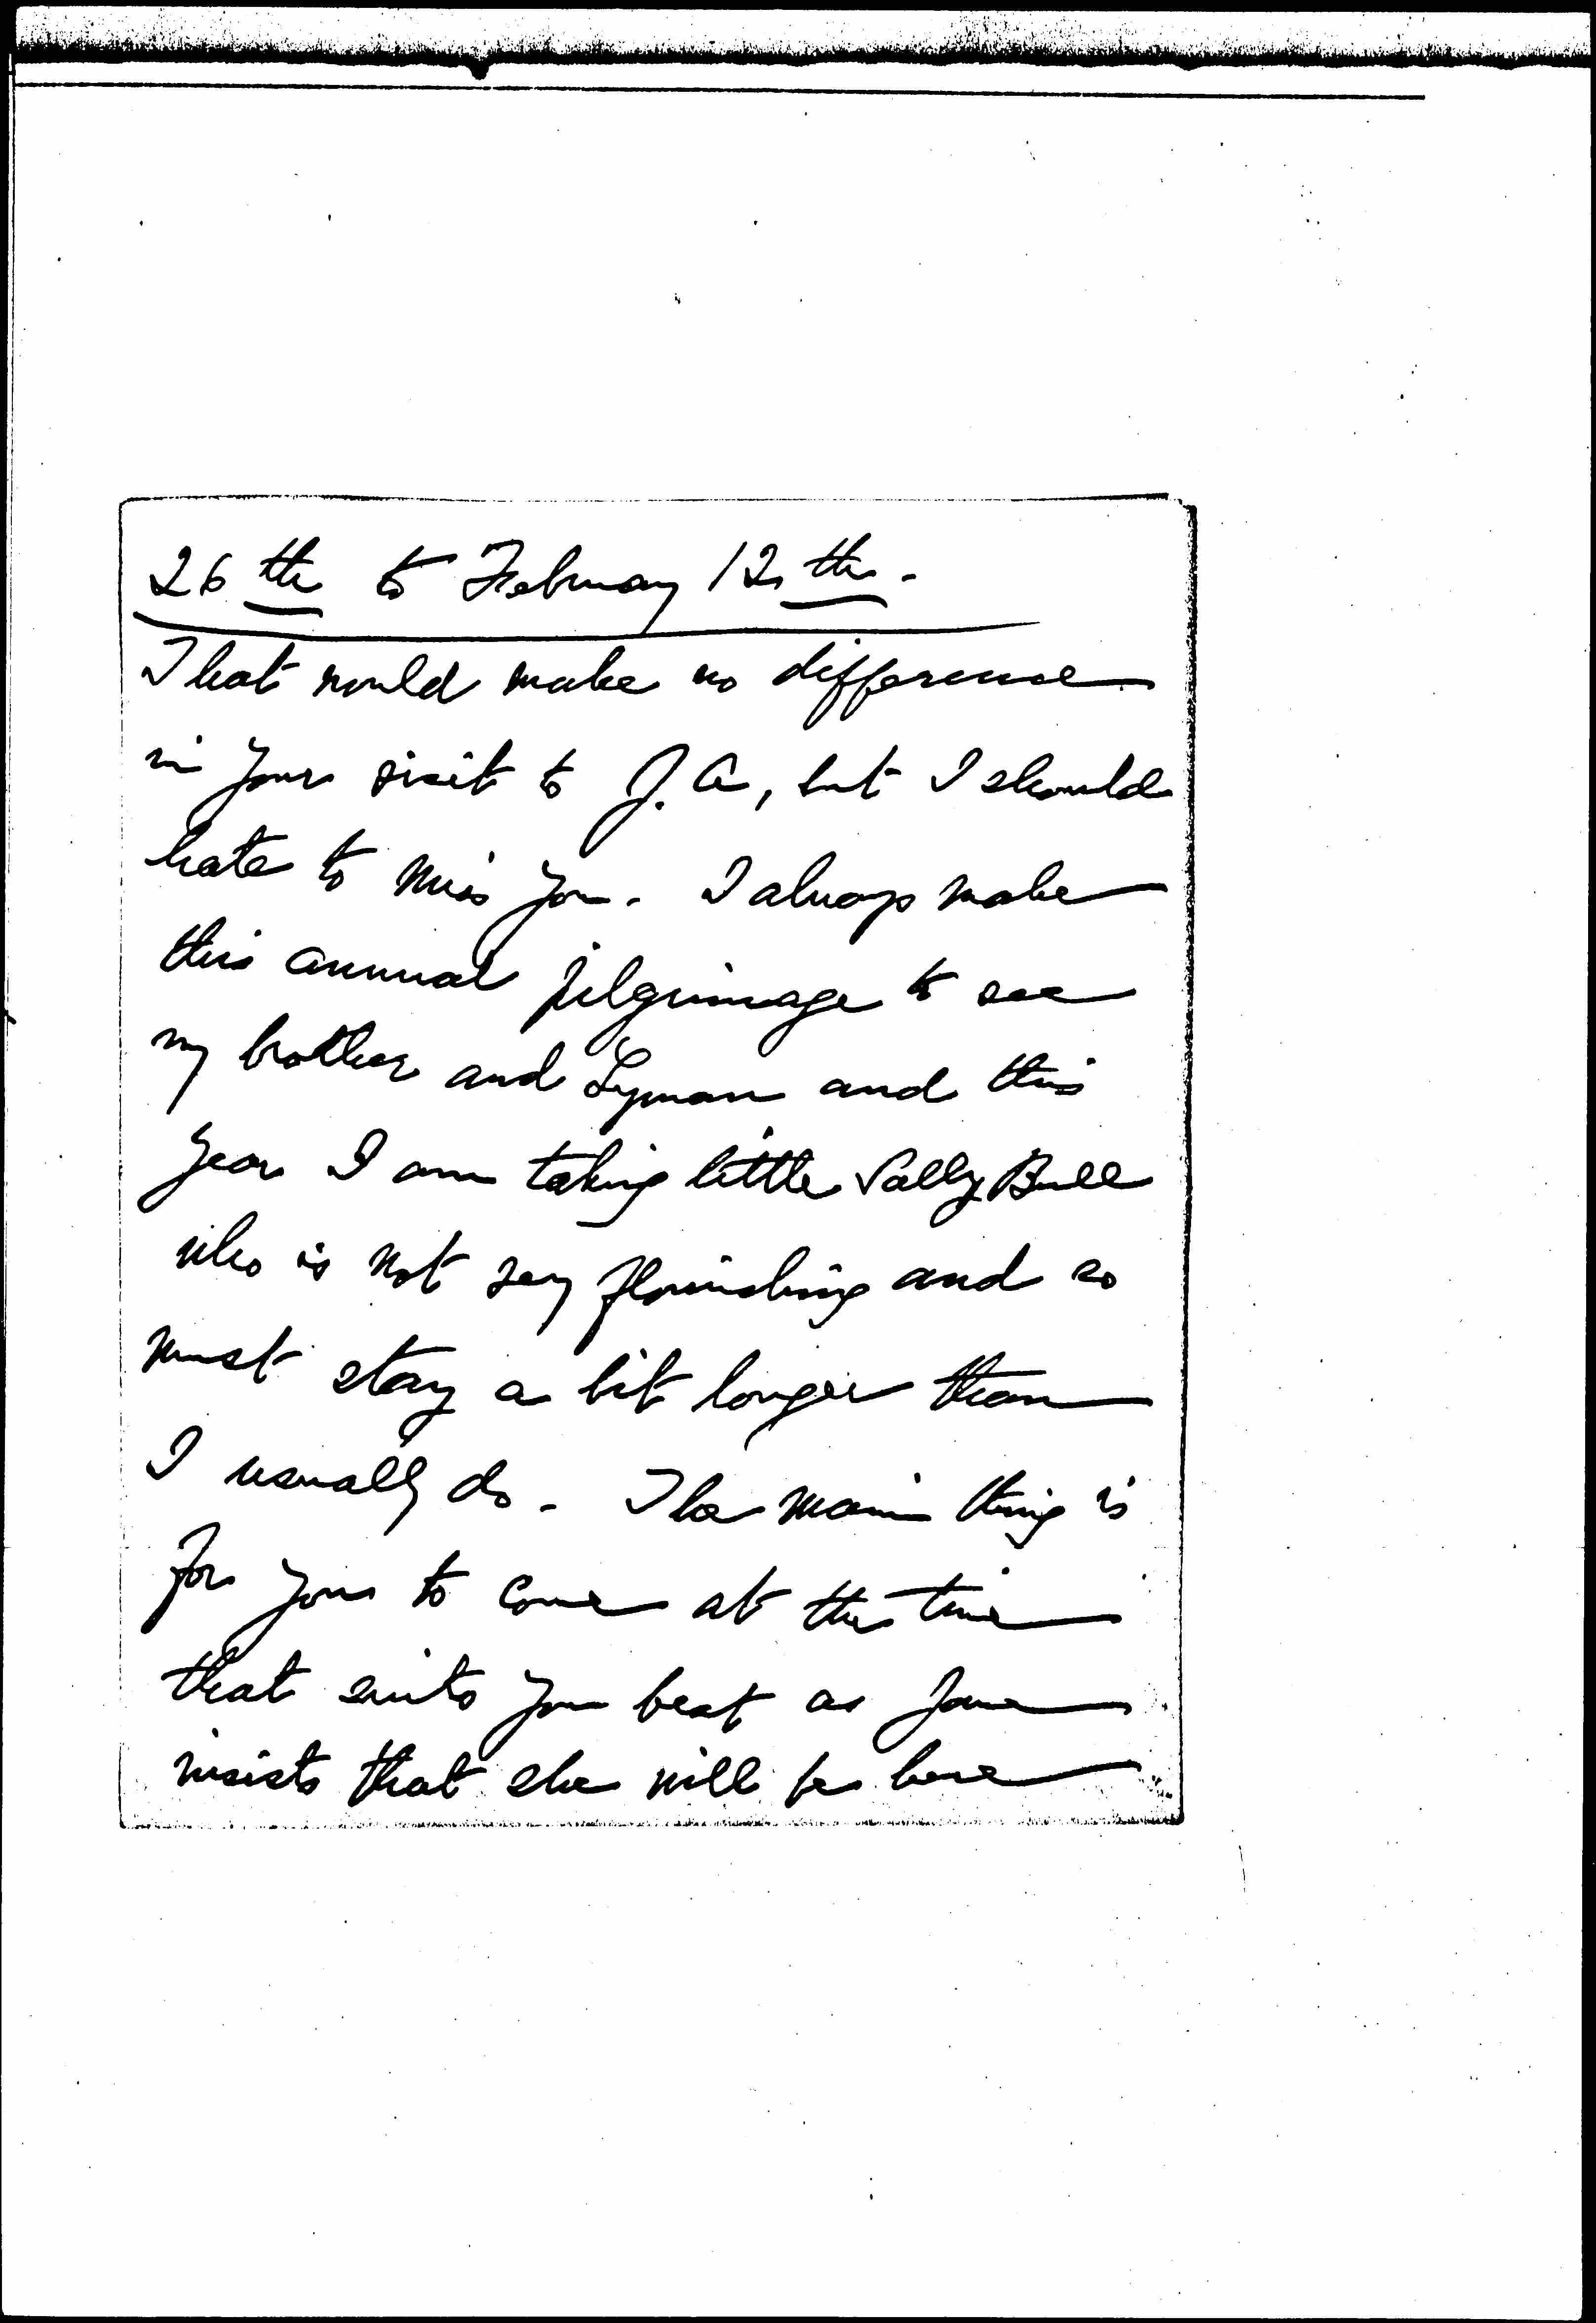 26th to February 12th.
That would make no difference
in your visit to J. A, but I should
hate to miss you. I always make
this annual pilgrimage to see
my brother and Lyman and this
year I am taking little Sally Bull
who is not very flourishing and so
must stay a bit longer than
I usually do. The main thing is
for you to come at the time
that suits you best as Jane
insists that she will be here